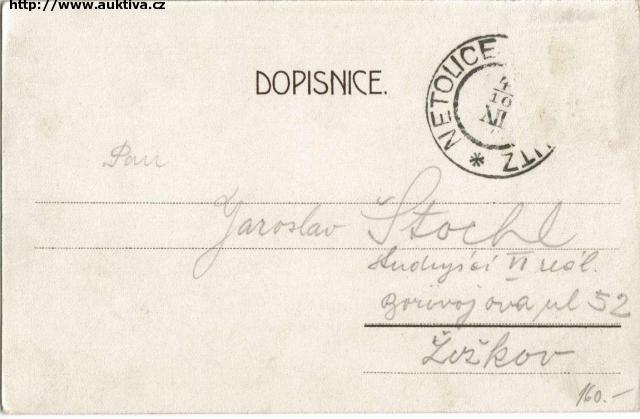 http://www.auktiva.cz
DOPISNICE.
NETOLICE
4
10
XII
* ITZ
Pan
Jaroslav Štochl
studující VI reál.
Bořivojova ul 52
Žižkov
160.-